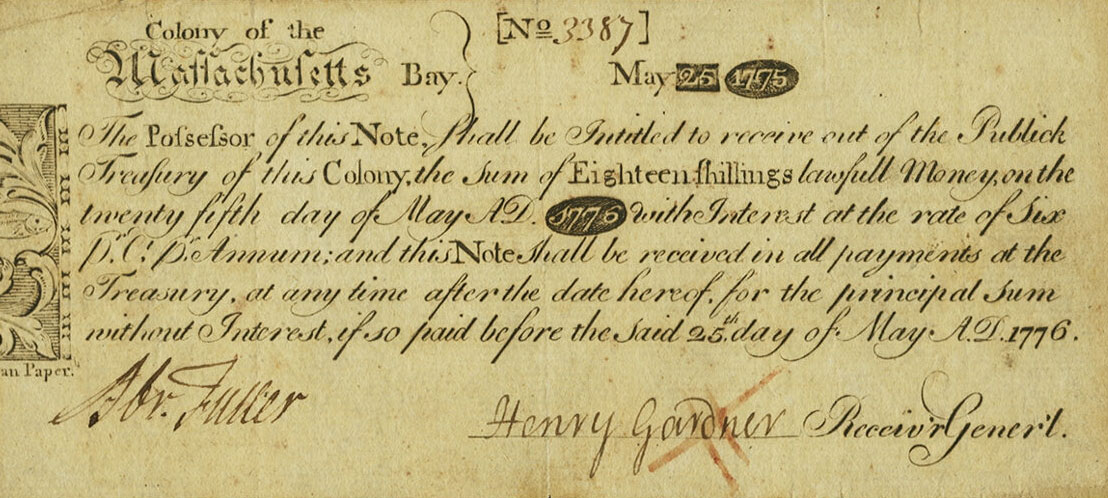 Colony of the [No 3387]
Maſſachuſetts Bay. May 25 1775
The Poſseſsor of this Note, ſhall be Intitled to receive out of the Publick
Treaſury of this Colony, the Sum of Eighteen ſhillings lawfull Money, on the
twenty fifth day of May A.D. 1776 with Intereſt at the rate of Six
Pr. Ct. Pr. Annum; and this Note ſhall be received in all payments at the
Treaſury, at any time after the date hereof, for the principal Sum
without Intereſt, if so paid before the Said 25th. day of May A.D. 1776.
an Paper.
Abr. Fuller
Henry Gardner Receiv'r Gener'l.